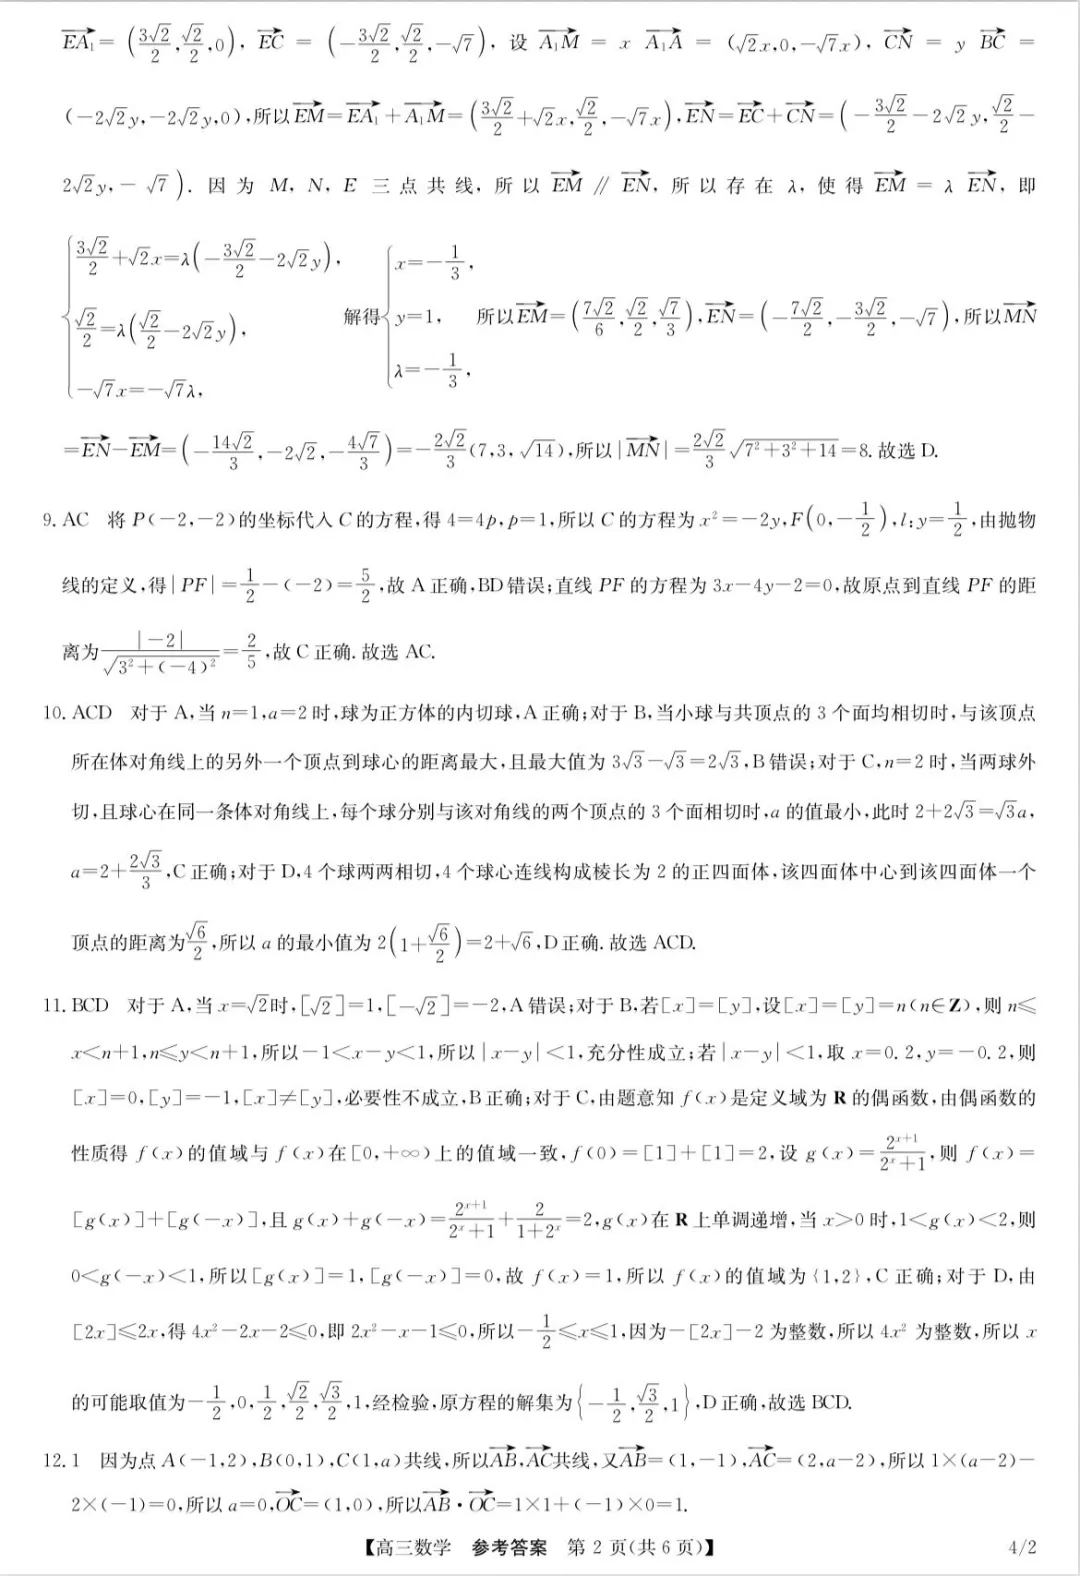 $\overrightarrow{EA_1}=\left(\frac{3\sqrt{2}}{2},\frac{\sqrt{2}}{2},0\right)$, $\overrightarrow{EC}=\left(-\frac{3\sqrt{2}}{2},\frac{\sqrt{2}}{2},-\sqrt{7}\right)$, 设 $\overrightarrow{A_1M}=x\overrightarrow{A_1A}=(\sqrt{2}x,0,-\sqrt{7}x)$, $\overrightarrow{CN}=y\overrightarrow{BC}=$
$(-2\sqrt{2}y,-2\sqrt{2}y,0)$,所以$\overrightarrow{EM}=\overrightarrow{EA_1}+\overrightarrow{A_1M}=\left(\frac{3\sqrt{2}}{2}+\sqrt{2}x,\frac{\sqrt{2}}{2},-\sqrt{7}x\right)$,$\overrightarrow{EN}=\overrightarrow{EC}+\overrightarrow{CN}=\left(-\frac{3\sqrt{2}}{2}-2\sqrt{2}y,\frac{\sqrt{2}}{2}-\right.$
$\left.2\sqrt{2}y,-\sqrt{7}\right)$. 因为 M, N, E 三点共线, 所以 $\overrightarrow{EM}∥\overrightarrow{EN}$, 所以存在 λ, 使得 $\overrightarrow{EM}=λ\overrightarrow{EN}$, 即
$\begin{cases}\frac{3\sqrt{2}}{2}+\sqrt{2}x=λ\left(-\frac{3\sqrt{2}}{2}-2\sqrt{2}y\right),\\ \frac{\sqrt{2}}{2}=λ\left(\frac{\sqrt{2}}{2}-2\sqrt{2}y\right),\\ -\sqrt{7}x=-\sqrt{7}λ,\end{cases}$ 解得$\begin{cases}x=-\frac{1}{3},\\ y=1,\\ λ=-\frac{1}{3},\end{cases}$ 所以$\overrightarrow{EM}=\left(\frac{7\sqrt{2}}{6},\frac{\sqrt{2}}{2},\frac{\sqrt{7}}{3}\right)$,$\overrightarrow{EN}=\left(-\frac{7\sqrt{2}}{2},-\frac{3\sqrt{2}}{2},-\sqrt{7}\right)$,所以$\overrightarrow{MN}$
$=\overrightarrow{EN}-\overrightarrow{EM}=\left(-\frac{14\sqrt{2}}{3},-2\sqrt{2},-\frac{4\sqrt{7}}{3}\right)=-\frac{2\sqrt{2}}{3}(7,3,\sqrt{14})$,所以$|\overrightarrow{MN}|=\frac{2\sqrt{2}}{3}\sqrt{7^2+3^2+14}=8$. 故选 D.
9. AC 将 P(-2,-2)的坐标代入 C 的方程,得 4=4p,p=1,所以 C 的方程为 $x^2=-2y$,$F\left(0,-\frac{1}{2}\right)$,$l:y=\frac{1}{2}$,由抛物
线的定义,得$|PF|=\frac{1}{2}-(-2)=\frac{5}{2}$,故 A 正确,BD 错误;直线 PF 的方程为 3x-4y-2=0,故原点到直线 PF 的距
离为$\frac{|-2|}{\sqrt{3^2+(-4)^2}}=\frac{2}{5}$,故 C 正确. 故选 AC.
10. ACD 对于 A,当 n=1,a=2 时,球为正方体的内切球,A 正确;对于 B,当小球与共顶点的 3 个面均相切时,与该顶点
所在体对角线上的另外一个顶点到球心的距离最大,且最大值为 $3\sqrt{3}-\sqrt{3}=2\sqrt{3}$,B 错误;对于 C,n=2 时,当两球外
切,且球心在同一条体对角线上,每个球分别与该对角线的两个顶点的 3 个面相切时,a 的值最小,此时 $2+2\sqrt{3}=\sqrt{3}a$,
$a=2+\frac{2\sqrt{3}}{3}$,C 正确;对于 D,4 个球两两相切,4 个球心连线构成棱长为 2 的正四面体,该四面体中心到该四面体一个
顶点的距离为$\frac{\sqrt{6}}{2}$,所以 a 的最小值为 $2\left(1+\frac{\sqrt{6}}{2}\right)=2+\sqrt{6}$,D 正确. 故选 ACD.
11. BCD 对于 A,当 $x=\sqrt{2}$时,$[\sqrt{2}]=1$,$[-\sqrt{2}]=-2$,A 错误;对于 B,若[x]=[y],设[x]=[y]=n(n∈Z),则 n≤
x<n+1,n≤y<n+1,所以-1<x-y<1,所以|x-y|<1,充分性成立;若|x-y|<1,取 x=0.2,y=-0.2,则
[x]=0,[y]=-1,[x]≠[y],必要性不成立,B 正确;对于 C,由题意知 f(x)是定义域为 R 的偶函数,由偶函数的
性质得 f(x)的值域与 f(x)在[0,+∞)上的值域一致,f(0)=[1]+[1]=2,设 $g(x)=\frac{2^{x+1}}{2^x+1}$,则 f(x)=
[g(x)]+[g(-x)],且 $g(x)+g(-x)=\frac{2^{x+1}}{2^x+1}+\frac{2}{1+2^x}=2$,g(x)在 R 上单调递增,当 x>0 时,1<g(x)<2,则
0<g(-x)<1,所以[g(x)]=1,[g(-x)]=0,故 f(x)=1,所以 f(x)的值域为{1,2},C 正确;对于 D,由
[2x]≤2x,得 $4x^2-2x-2≤0$,即 $2x^2-x-1≤0$,所以$-\frac{1}{2}≤x≤1$,因为-[2x]-2 为整数,所以 $4x^2$ 为整数,所以 x
的可能取值为$-\frac{1}{2},0,\frac{1}{2},\frac{\sqrt{2}}{2},\frac{\sqrt{3}}{2},1$,经检验,原方程的解集为$\left\{-\frac{1}{2},\frac{\sqrt{3}}{2},1\right\}$,D 正确,故选 BCD.
12. 1 因为点 A(-1,2),B(0,1),C(1,a)共线,所以$\overrightarrow{AB}$,$\overrightarrow{AC}$共线,又$\overrightarrow{AB}=(1,-1)$,$\overrightarrow{AC}=(2,a-2)$,所以 1×(a-2)-
2×(-1)=0,所以 a=0,$\overrightarrow{OC}=(1,0)$,所以$\overrightarrow{AB}·\overrightarrow{OC}=1×1+(-1)×0=1$.
【高三数学 参考答案 第 2 页(共 6 页)】 4/2